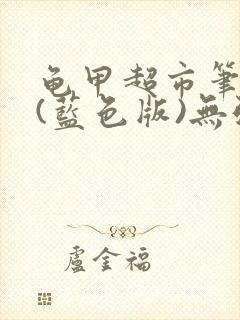 龜甲超市筆
(藍色版)無
盧金福